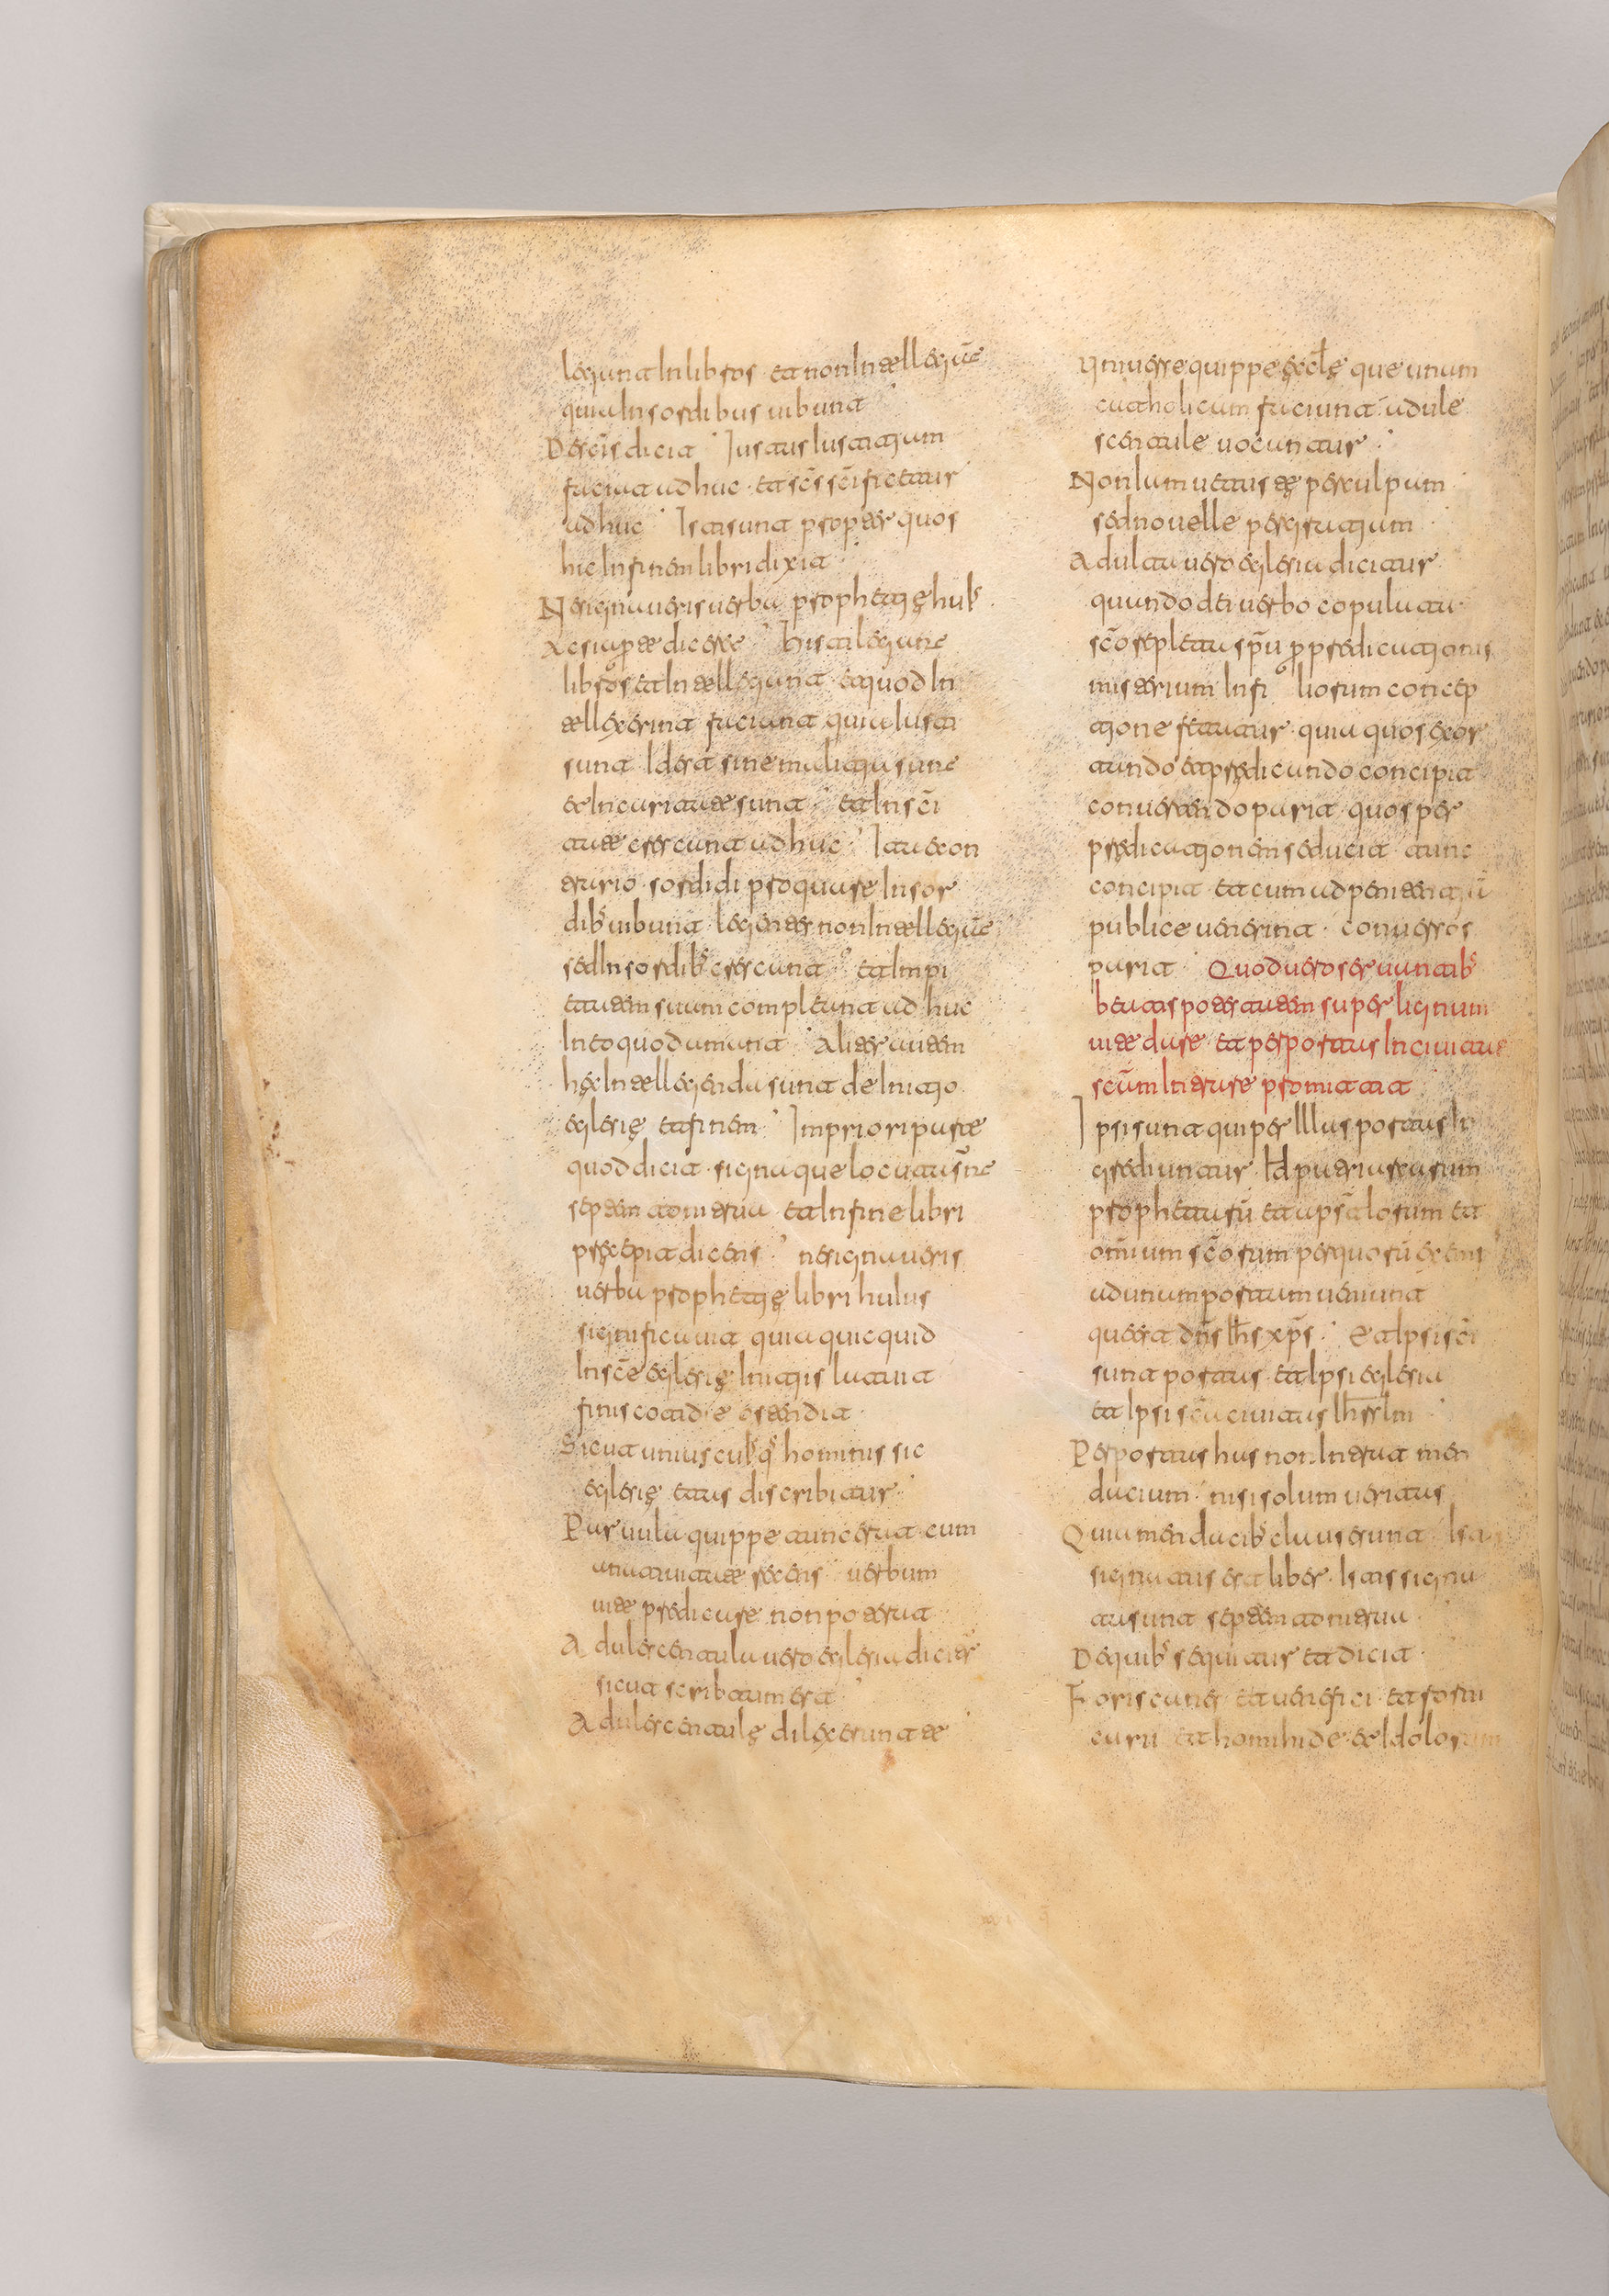 legunt In libros et non Intellegūt
quia In sordibus uibunt
De sc̄is dicit Iustus Iustitiam
faciat adhuc et sc̄s sc̄ificetur
adhuc Isti sunt propter quos
hic In finem libri dixit
Ne signaueris uerba prophetię hui᾽
Ac si ap̄te diceret hi sti legunt
libros et Intellegunt et quod In
tellexerint faciunt quia Iusti
sunt Id est sine malitia sunt
et In caritate sunt et In sc̄i
tate crescunt adhuc Ita e con
trario sordidi pro qua re In sor
dib᾽ uibunt legenter non Intellegūt
sed In sordib᾽ crescunt et Impi
etatem suam compleunt ad huc
In eo quod amant Aliter autem
hęc Intellegenda sunt de Initio
eglesię et a finem In priori parte
quod dicit signa que locuta sūt
septem tonitrua et In fine libri
pręcepit dicens ne signaueris
uerba prophetię libri huius
significauit quia quicquid
In sc̄e eglesię Initiis latuit
finis cotidie ostendit
Sicut unius cui᾽q᾽ hominis sic
eglesię etas discribitur
Paruula quippe tunc erat cum
a natiuitate recens uerbum
uite predicare non poterat
Adulescentula uero eglesia dicit᾽r
sicut scribtum est
Adulescentulę dilexerunt te
Vniuerse quippe ęccl̄ę que unam
catholicam faciunt adule
scentule uocantur
Non Iam uetustę per culpam
sed nouelle per gratiam
Adulta uero eglesia dicitur
quando dei uerbo copulata
sc̄o repleta sp̄u p̄ predicationis
misterium In filiorum concep
tione fetatur quia quos exor
tando et prędicando concipit
conuertendo parit quos per
prędicationem seducit tunc
concipit et cum ad penitentiā
publice uenerint conuersos
parit Quod uero seruantib᾽
beatis potestatem super lignum
uite dare et per portas In ciuitatē
sc̄am Intrare promittit
Ipsi sunt qui per Illas portas In
grediuntur Id patriarcarum
prophetarū et apsāłorum et
omīum sc̄orum per quorū exem
ad unam portam ueniunt
que est dn̄s Ih̄s xp̄s Et Ipsi sc̄i
sunt portas et Ipsi eglesia
et Ipsi sc̄a ciuitas Ih̄rsłm
Per portas has non Intrat men
dacium nisi solum ueritas
Quia mendacib᾽ clausę sunt
signatus est liber Istis signa
ta sunt septem tonitrua
De quib᾽ sequitur et dicit
Foris canes et uenefici et forni
carii et homihide et Idolorum